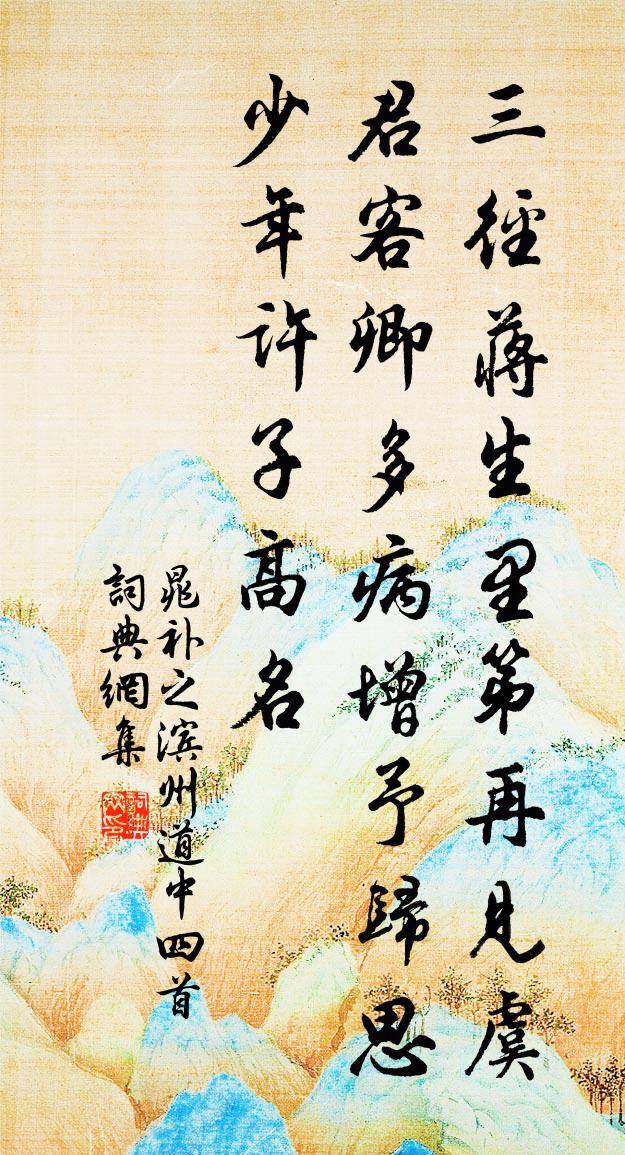 三徑蔣生里第再見虞
君客卿多病增予歸思
少年許子高名
晁补之滨州道中四首
詞典網集